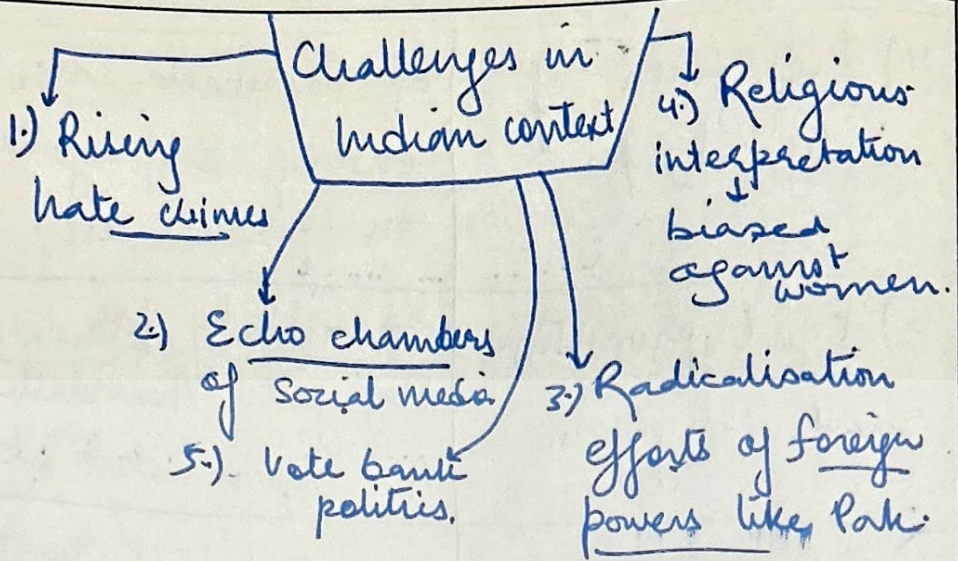 Challenges in
Indian context
1.) Rising
hate crimes
2.) Echo chambers
of social media
3.) Radicalisation
efforts of foreign
powers like, Pak.
4.) Religious
interpretation
↓
biased
against
women.
5.) Vote bank
politics.